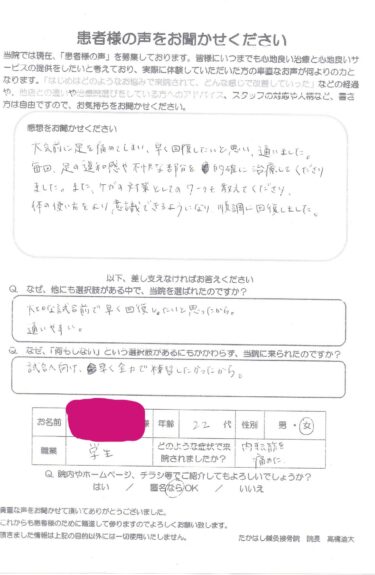 患者様の声をお聞かせください
当院では現在、「患者様の声」を募集しております。皆様にいつまでも心地良い治療と心地良いサ
ービスの提供をしたいと考えており、実際に体験していただいた方の率直なお声が何よりの力と
なります。「はじめはどのようなお悩みで来院されて、どんな感じで改善していった」などの経過
や、他店との違いや治療院選びをしている方へのアドバイス、スタッフの対応や人柄など、書き
方は自由ですので、お気持ちをお聞かせください。
感想をお聞かせください
大会前に足を痛めてしまい、早く回復したいと思い、通いました。
毎回、足の違和感や不快な部分を的確に治療してくださり
ました。また、ケガの対策としてのワークも教えてくださり、
体の使い方をより意識できるようになり順調に回復しました。
以下、差し支えなければお答えください
Q. なぜ、他にも選択肢がある中で、当院を選ばれたのですか?
大切な試合前で早く回復したいと思ったから。
通いやすい。
Q. なぜ、「何もしない」という選択肢があるにもかかわらず、当院に来られたのですか?
試合へ向け、早く全力で練習したかったから。
お名前 様 年齢 22 代 性別 男・女
職業 学生 どのような症状で来院されましたか? 内転筋を痛めた
Q. 院内やホームページ、チラシ等でご紹介してもよろしいでしょうか?
はい / 匿名ならOK / いいえ
貴重な声をお聞かせて頂いてありがとうございました。
これからも患者様のために精進して参りますのでよろしくお願い致します。
頂きました情報は上記の目的以外には一切使用いたしません。 たかはし鍼灸接骨院 院長 高橋迪大